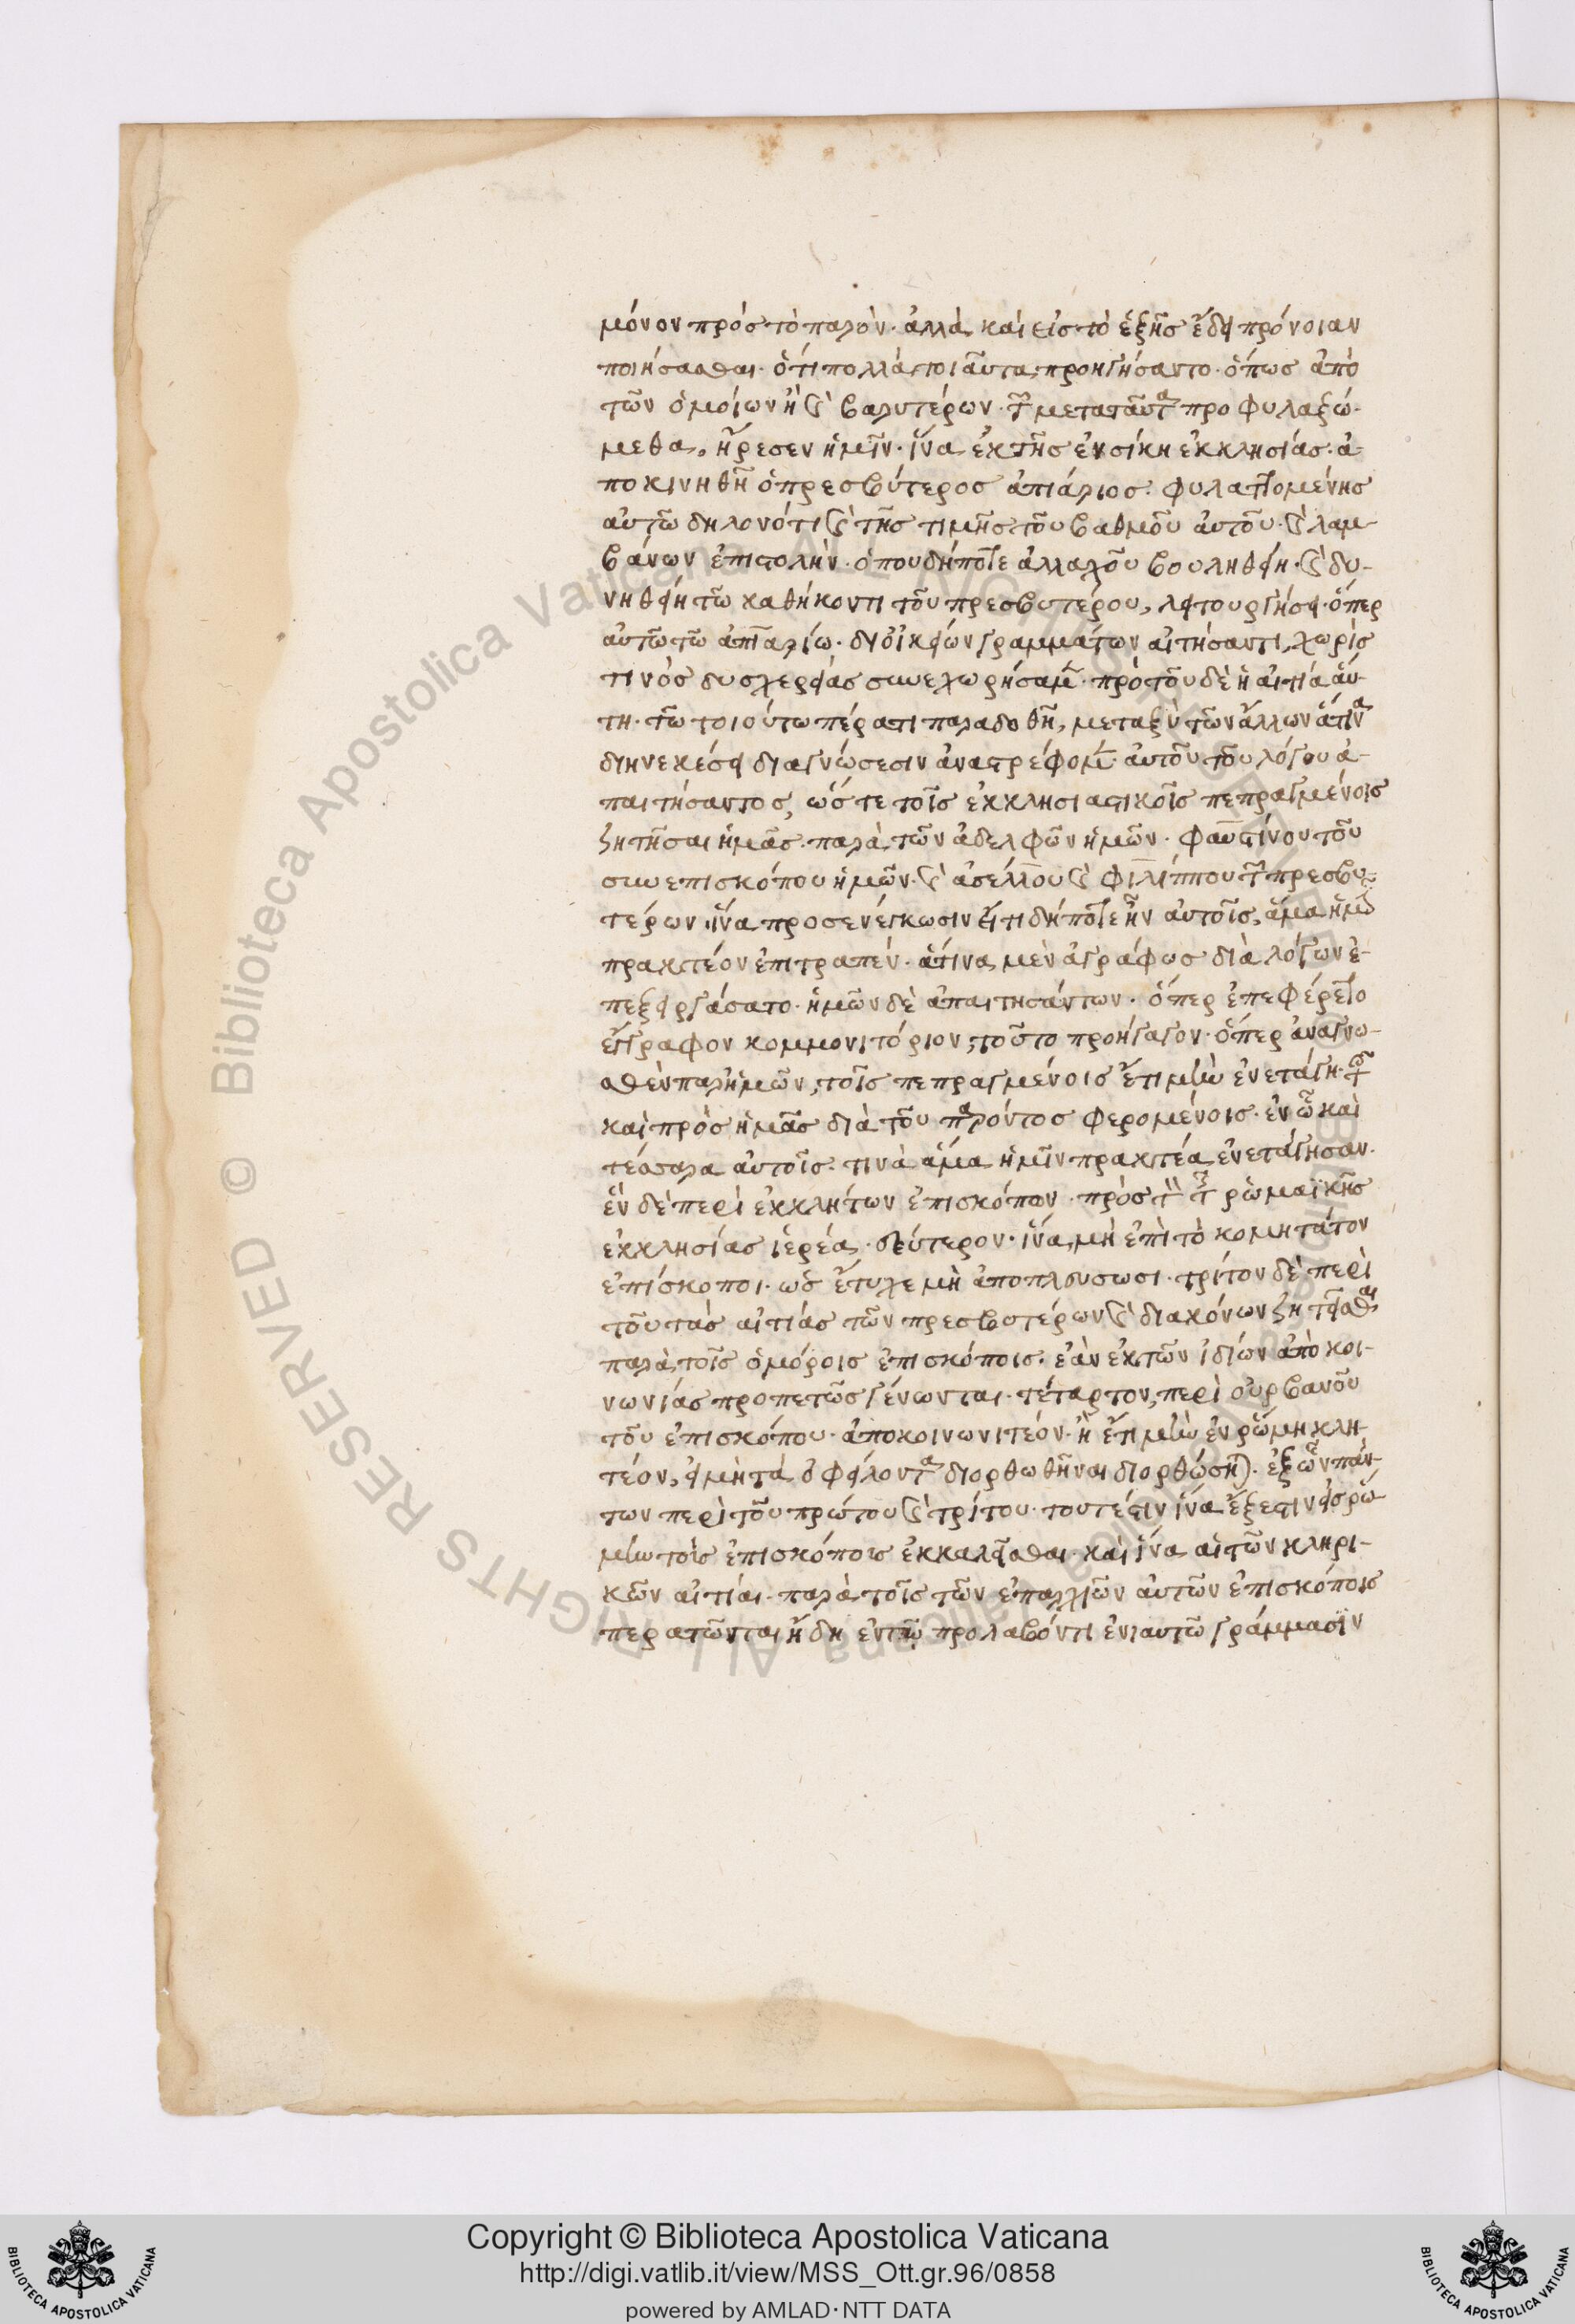 μόνον πρὸς τὸ παρὸν· ἀλλὰ καὶ εἰς τὸ ἑξῆς ἔδει πρόνοιαν
ποιήσασθαι· ὅτι πολλὰ τοιαῦτα προηγήσαντο· ὅπως ἀπὸ
τῶν ὁμοίων ἢ καὶ βαρυτέρων τῶν μεταταῦτα προφυλαξώ-
μεθα, ἤρεσεν ἡμῖν· ἵνα ἐκ τῆς ἐν σίκη ἐκκλησίας· ἀ-
ποκινηθῆ ὁ πρεσβύτερος ἀπιάριος· φυλαττομένης
αὐτῶ δηλονότι καὶ τῆς τιμῆς τοῦ βαθμοῦ αὐτοῦ· καὶ λαμ-
βάνων ἐπιστολὴν· ὁπουδήποτε ἀλλαχοῦ βουληθείη· καὶ δυ-
νηθείη τῶ καθήκοντι τοῦ πρεσβυτέρου, λειτουργήσει· ὅπερ
αὐτῶ τῶ ἀππιαρίω· δι' οἰκείων γραμμάτων αἰτήσαντι, χωρὶς
τινὸς δυσχερείας συνεχωρήσαμεν· πρὸ τοῦ δὲ ἡ αἰτία αὕ-
τη· τῶ τοιούτω πέρατι παραδοθῆ, μεταξὺ τῶν ἄλλων ἅτινα
διηνεκέσι διαγνώσεσιν ἀναστρέφομεν· αὐτοῦ τοῦ λόγου ἀ-
παιτήσαντος, ὥς τε τοῖς ἐκκλησιαστικοῖς πεπραγμένοις
ζητῆσαι ἡμᾶς· παρὰ τῶν ἀδελφῶν ἡμῶν· φαυστίνου τοῦ
συνεπισκόπου ἡμῶν· καὶ ἀσέλλου καὶ φιλίππου τῶν πρεσβυ-
τέρων ἵνα προσενέγκωσιν εἴ τι δήποτε ἦν αὐτοῖς, ἅμα ἡμῖν
πρακτέον ἐπιτραπέν· ἅτινα μὲν ἀγράφως διὰ λόγων ἐ-
πεξειργάσατο· ἡμῶν δὲ ἀπαιτησάντων· ὅπερ ἐπεφέρετο
ἔγγραφον κομμονιτόριον, τοῦτο προήγαγον· ὅπερ ἀναγνω-
σθὲν παρ' ἡμῶν, τοῖς πεπραγμένοις ἔτι μὴν ἐνετάγη· τοῖς
καὶ πρὸς ἡμᾶς διὰ τοῦ παρόντος φερομένοις· ἐν ᾧ καὶ
τέσσαρα αὐτοῖς· τινὰ ἅμα ἡμῖν πρακτέα ἐνετάγησαν·
ἓν δὲ περὶ ἐκκλήτων ἐπισκόπων· πρὸς τὸν τῆς ῥωμαϊκῆς
ἐκκλησίας ἱερέα· δεύτερον· ἵνα μὴ ἐπὶ τὸ κομητάτον
ἐπίσκοποι· ὡς ἔτυχε μὴ ἀποπλεύσωσι· τρίτον δὲ περὶ
τοῦ τὰς αἰτίας τῶν πρεσβυτέρων καὶ διακόνων ζητεῖσθαι
παρὰ τοῖς ὁμόροις ἐπισκόποις· ἐὰν ἐκ τῶν ἰδίων ἀπὸ κοι-
νωνίας προπετῶς γένωνται· τέταρτον, περὶ οὐρβανοῦ
τοῦ ἐπισκόπου· ἀποκοινωνιτέον· ἢ ἔτι μὴν ἐν ῥώμη κλη-
τέον, εἰ μὴ τὰ ὀφείλοντα διορθωθῆναι διορθώσηται· ἐξ ὧν πάν-
των περὶ τοῦ πρώτου καὶ τρίτου· τουτέστιν ἵνα ἔξεστιν εἰς ῥώ-
μην τοῖς ἐπισκόποις ἐκκαλεῖσθαι· καὶ ἵνα αἱ τῶν κληρι-
κῶν αἰτίαι· παρὰ τοῖς τῶν ἐπαρχιῶν αὐτῶν ἐπισκόποις
περατῶνται ἤδη ἐν τῶ προλαβόντι ἐνιαυτῶ γράμμασιν
Copyright © Biblioteca Apostolica Vaticana
http://digi.vatlib.it/view/MSS_Ott.gr.96/0858
powered by AMLAD·NTT DATA
BIBLIOTECA APOSTOLICA VATICANA
BIBLIOTECA APOSTOLICA VATICANA
Biblioteca Apostolica Vaticana ALL RIGHTS RESERVED ©
Biblioteca Apostolica Vaticana ALL RIGHTS RESERVED ©